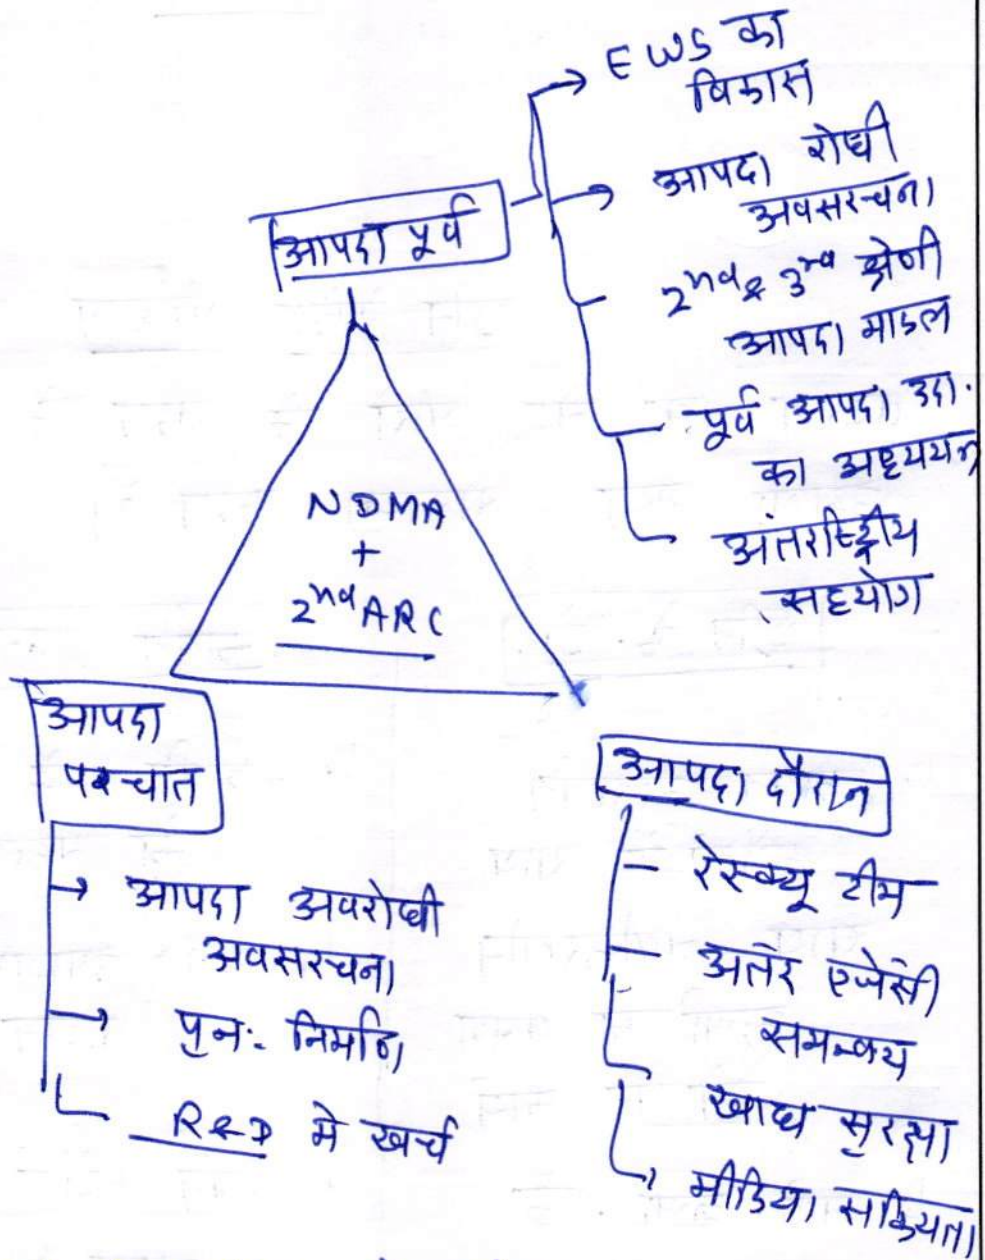 आपदा पूर्व
EWS का
विकास
आपदा रोधी
अवसरचना
2nd & 3rd श्रेणी
आपदा माडल
पूर्व आपदा उदा.
का अध्ययन
अंतर्राष्ट्रीय
सहयोग
NDMA
+
2nd ARC
आपदा
पश्चात
आपदा अवरोधी
अवसरचना
पुनः निर्माण
R&D मे खर्च
आपदा दौरान
रेस्क्यू टीम
अतंर एजेंसी
समन्वय
खाद्य सुरक्षा
मीडिया सक्रियता